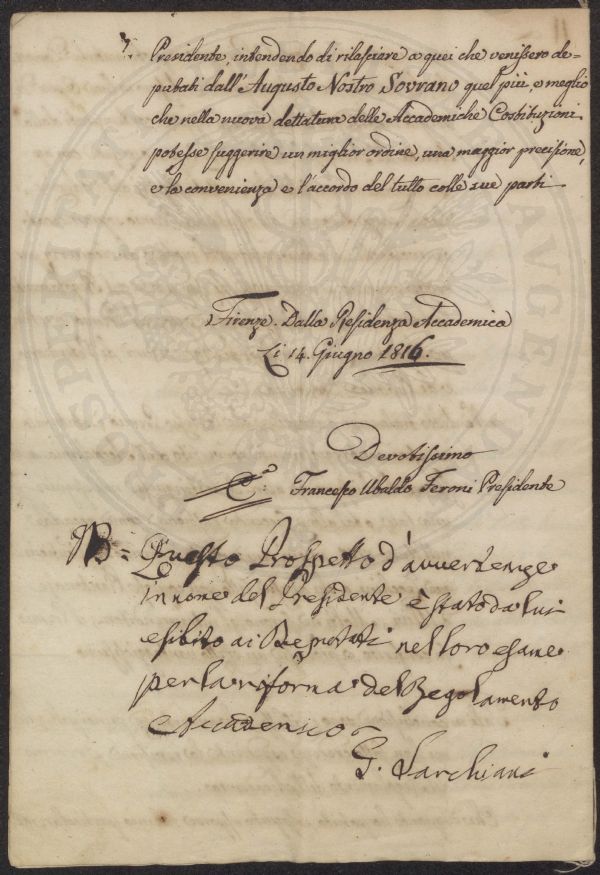 11
7. Presidente, intendendo di rilasciare a quei che venissero de=
putati dall'Augusto Nostro Sovrano quel più, e meglio
che nella nuova dettatura delle Accademiche Costituzioni
potesse suggerire un miglior ordine, una maggior precisione,
e la convenienza e l'accordo del tutto colle sue parti.
Firenze. Dalla Residenza Accademica
Li 14. Giugno 1816.
Devotissimo
Francesco Ubaldo Feroni Presidente
NB = Questo Prospetto d'avvertenze
in nome del Presidente è stato da lui
esibito ai Deputati nel loro esame
per la riforma del Regolamento
Accademico
G. Sarchiani